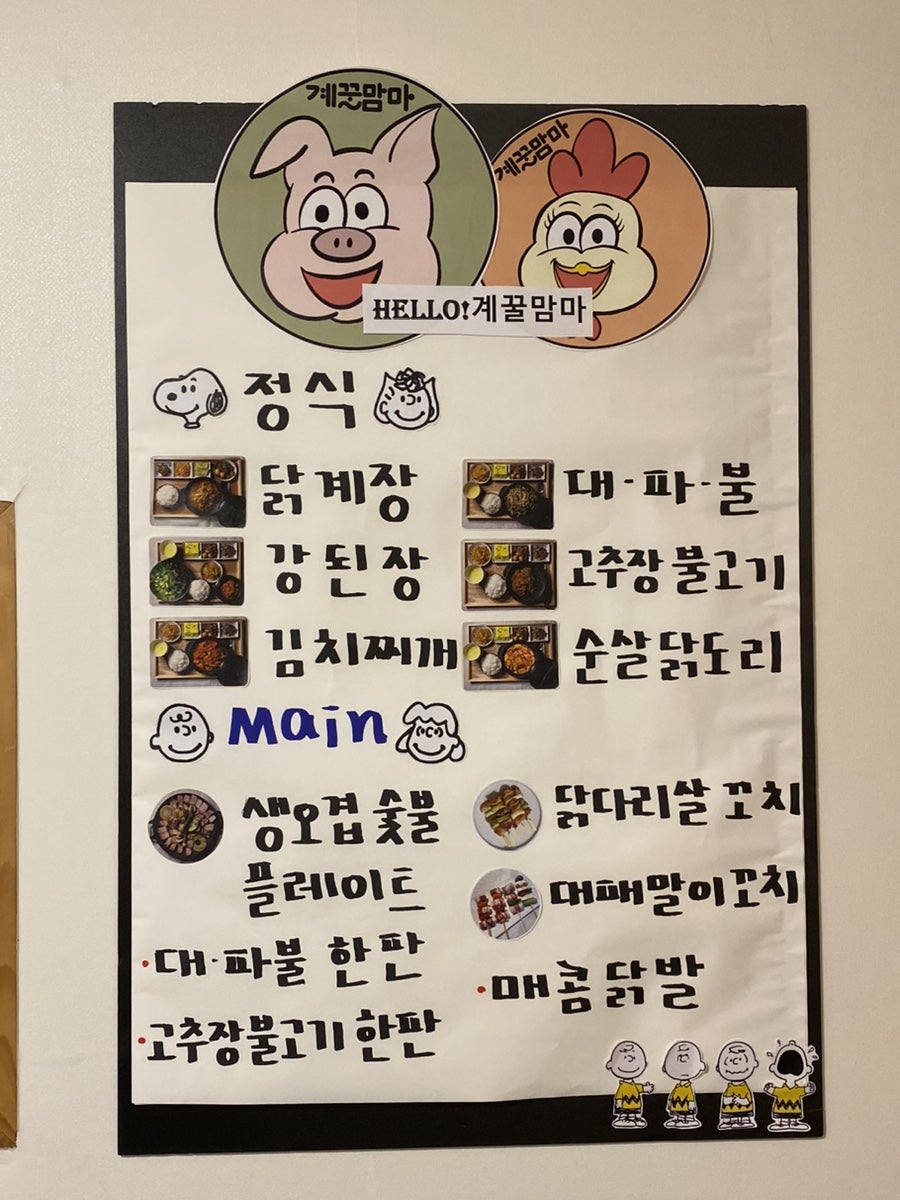 계꿀맘마
계꿀맘마
HELLO!계꿀맘마
정식
닭계장
대·파·불
강된장
고추장불고기
김치찌개
순살닭도리
Main
생오겹숯불
플레이트
닭다리살꼬치
대패말이꼬치
·대·파불 한판
·매콤닭발
·고추장불고기 한판